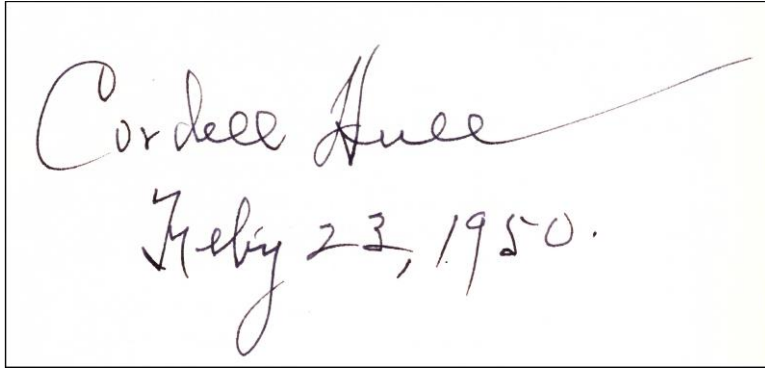 Cordell Hull
Feby 23, 1950.